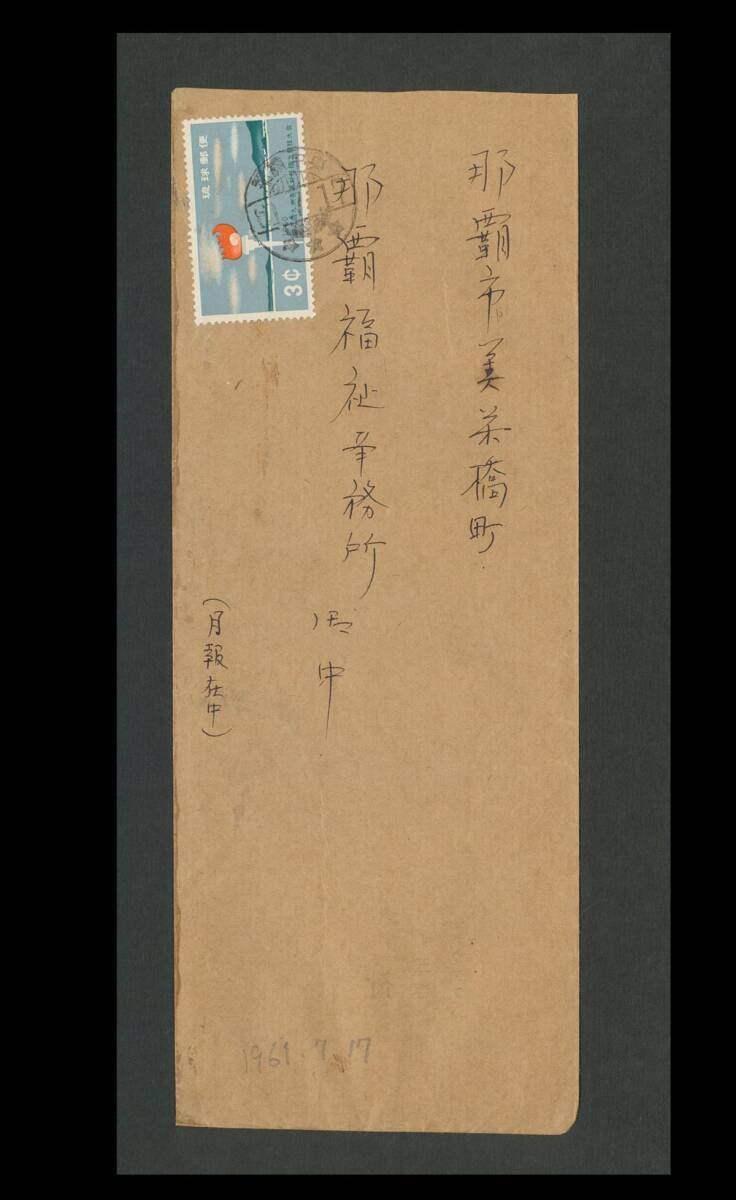 那覇市美栄橋町
那覇福祉事務所
御中
(月報在中)
琉球郵便
3¢
1961 7 17